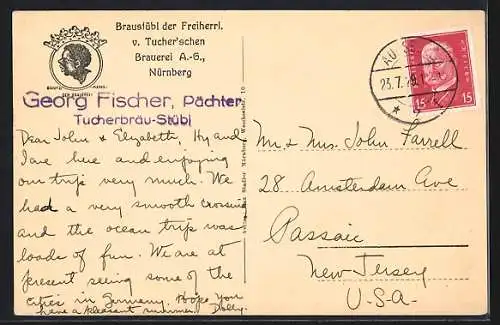 Braustübl der Freiherrl.
v. Tucher'schen
Brauerei A.-G.,
Nürnberg
Georg Fischer, Pächter
Tucherbräu-Stübl
Dear John & Elizabeth, Hy and
I are here and enjoying
our trip very much. We
had a very smooth crossing
and the ocean trip was
loads of fun. We are at
present seeing some of the
cities in Germany. Hope you
have a pleasant summer. Dolly.
23.7.
15 15
Mr. & Mrs. John Farrell
28 Amsterdam Ave
Passaic
New Jersey
U-S-A-